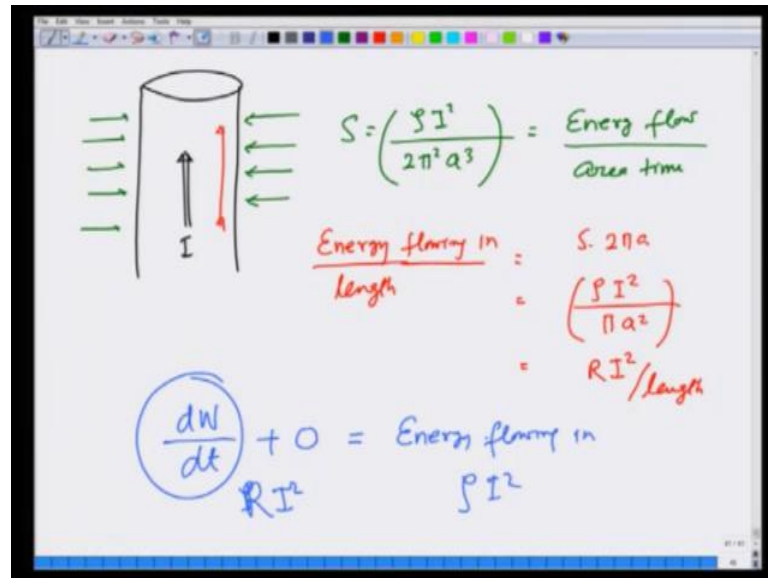 File Edit View Insert Actions Tools Help
S = (ρI² / 2π²a³) = Energy flow / area time
I
Energy flowing in / length = S. 2πa
= (ρI² / πa²)
= RI² / length
dW/dt + 0 = Energy flowing in
RI² ρI²